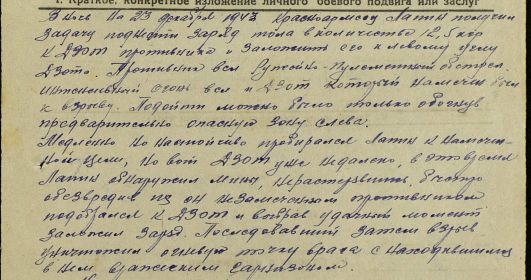 1. Краткое, конкретное изложение личного боевого подвига или заслуг
В ночь на 23 декабря 1943 Красноармеец Лапин получил
задачу поднести заряд тола в количестве 12,5 кгр
к ДЗОТ противника и заложить его к левому углу
Дзота. Противник вел ружейно-пулеметный обстрел.
интенсивный огонь вел и ДЗОТ который намечен был
к взрыву. Подойти можно было только обогнув
предварительно опасную зону слева.
Медленно но настойчиво пробирался Лапин к намечен-
ной цели, но вот ДЗОТ уже недалеко, в это время
Лапин обнаружил мины, нерастерявшись, быстро
обезвредил их он незамеченным противником
подобрался к ДЗОТ и выбрав удачный момент
заложил заряд. Последовавший затем взрыв
уничтожил огневую точку врага с находившимся
в нем вражеским гарнизоном.